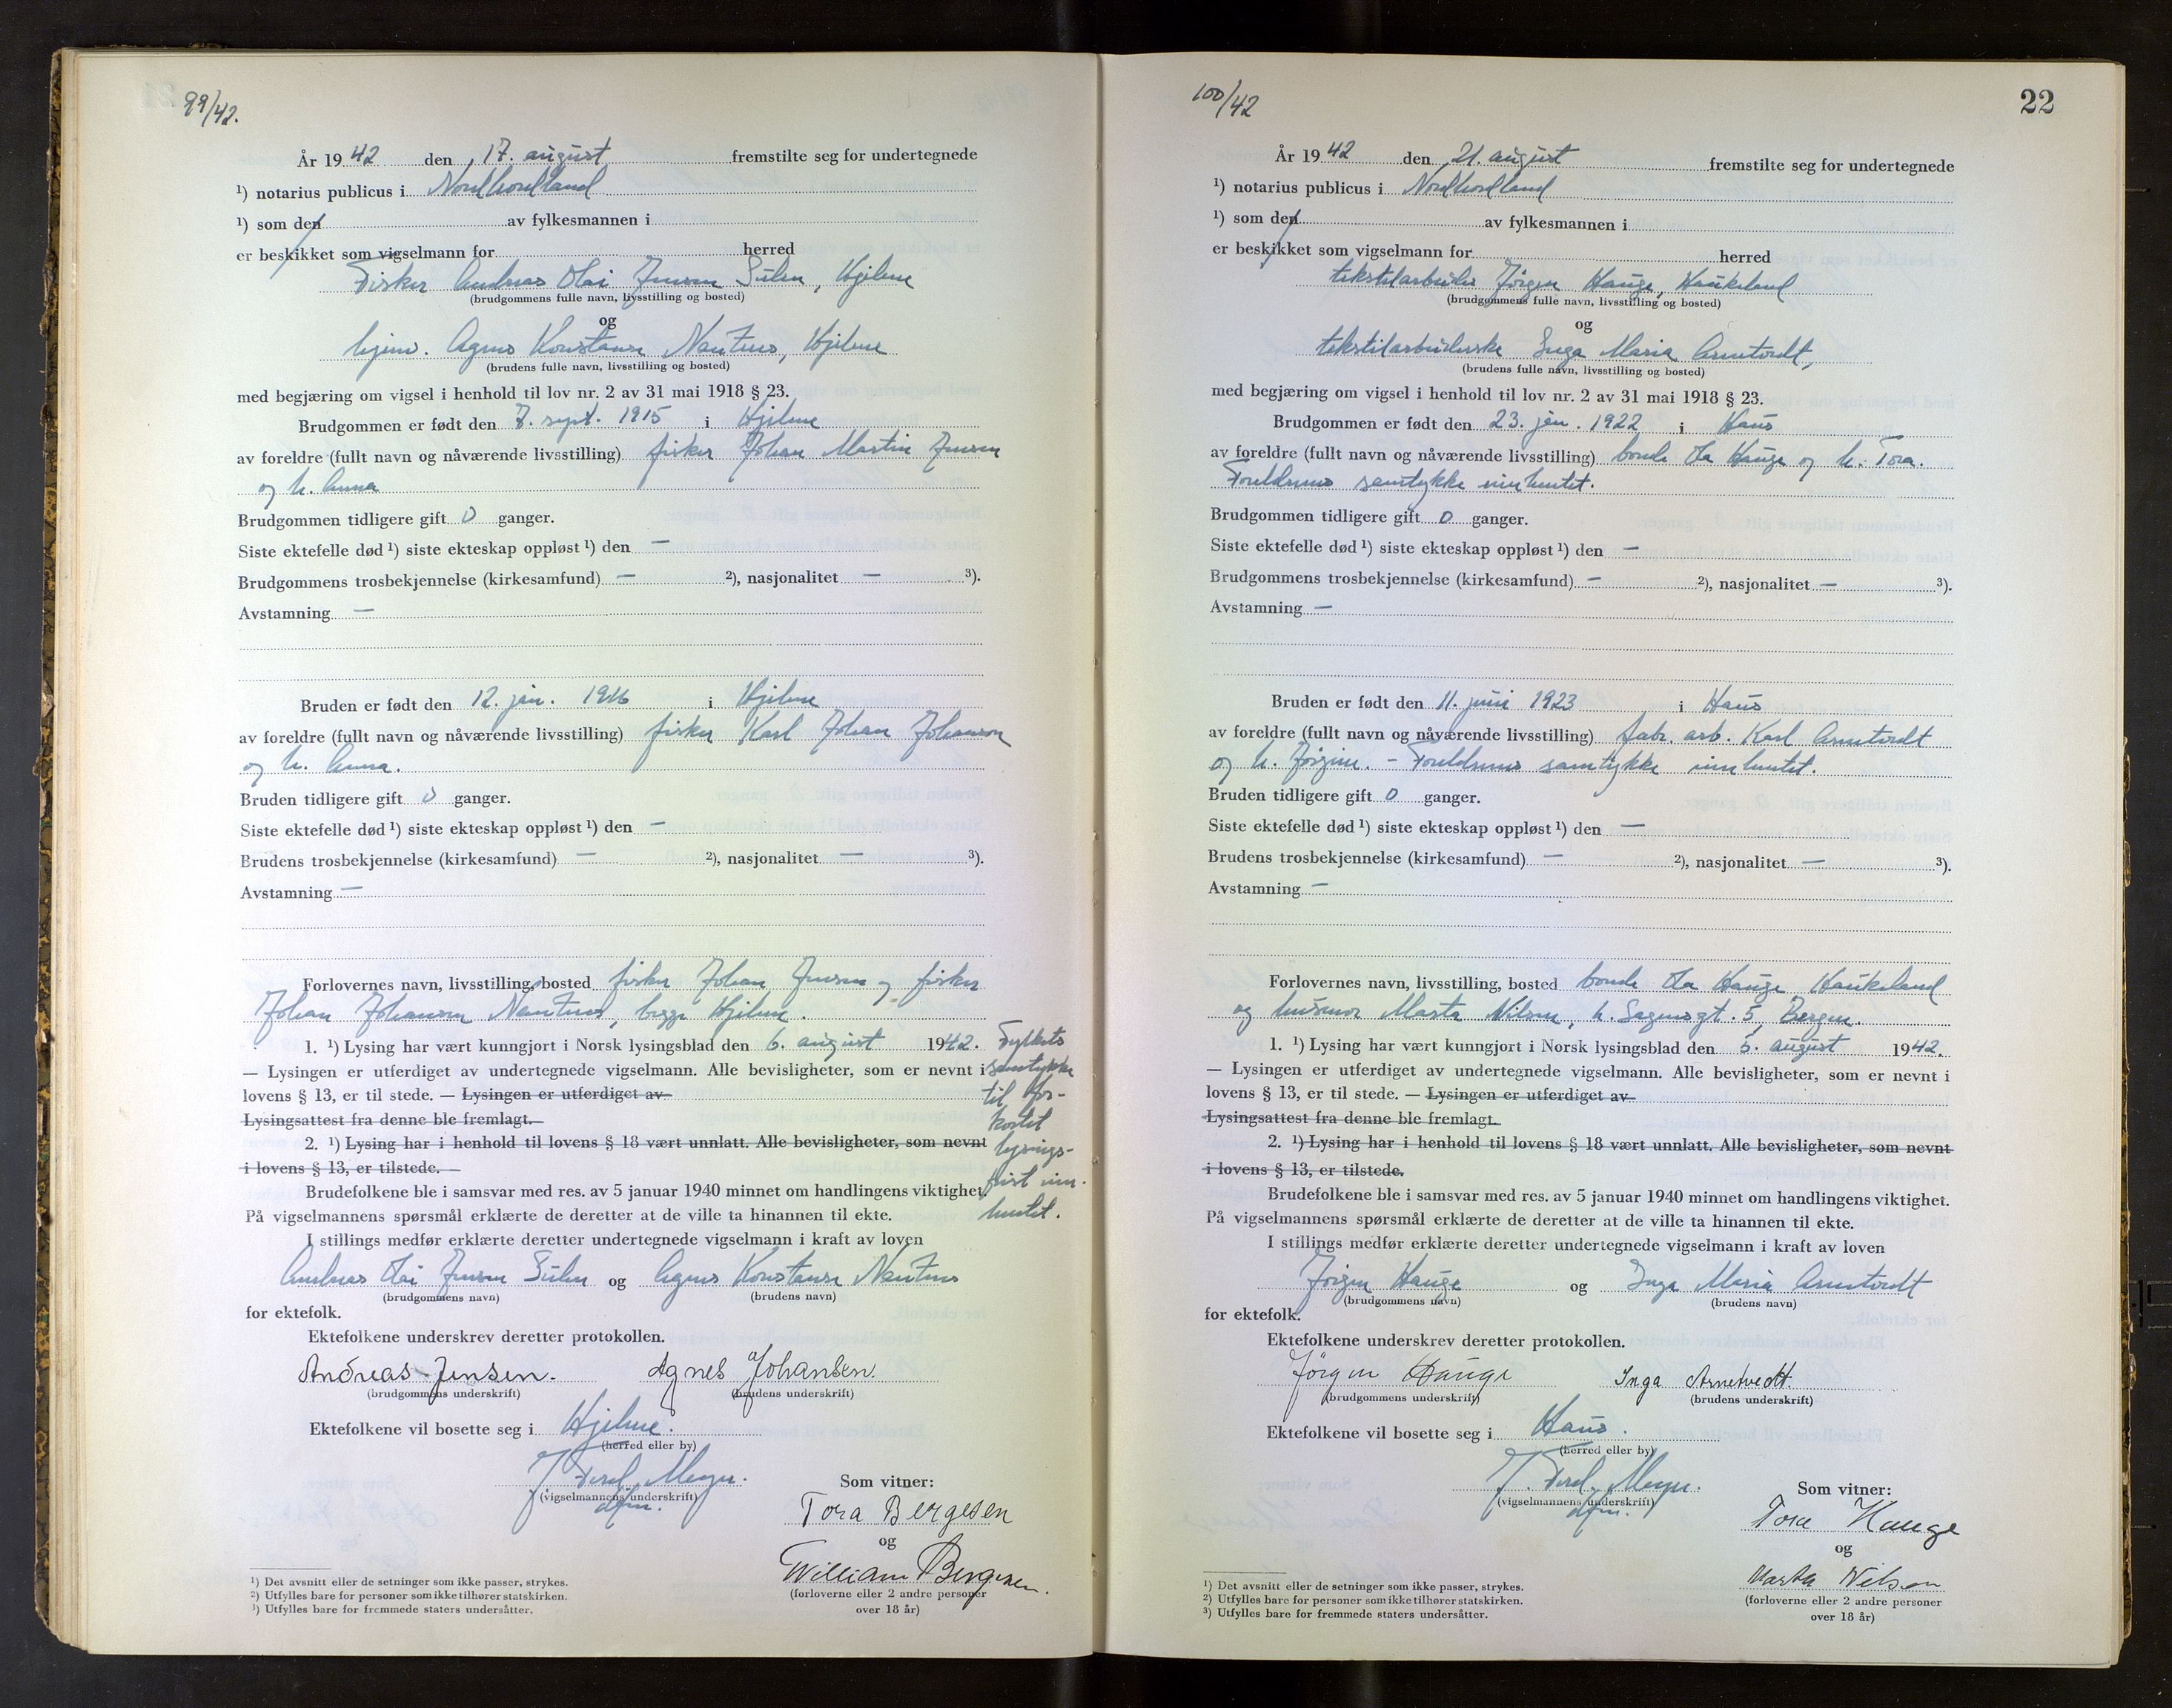 99/42.
År 19 42 den 17. august fremstilte seg for undertegnede
¹) notarius publicus i Nordhordland
¹) som den av fylkesmannen i
er beskikket som vigselmann for herred
Fisker Andreas Olai Jensen Sulen, Hjelme
(brudgommens fulle navn, livsstilling og bosted)
og
hjem. Agnes Konstanse Nautnes, Hjelme
(brudens fulle navn, livsstilling og bosted)
med begjæring om vigsel i henhold til lov nr. 2 av 31 mai 1918 § 23.
Brudgommen er født den 7. sept. 1915 i Hjelme
av foreldre (fullt navn og nåværende livsstilling) fisker Johan Martin Jensen
og h. Anna
Brudgommen tidligere gift 0 ganger.
Siste ektefelle død ¹) siste ekteskap oppløst ¹) den —
Brudgommens trosbekjennelse (kirkesamfund) — ²), nasjonalitet — ³).
Avstamning —
Bruden er født den 12. jan. 1916 i Hjelme
av foreldre (fullt navn og nåværende livsstilling) fisker Karl Johan Johansen
og h. Anna.
Bruden tidligere gift 0 ganger.
Siste ektefelle død ¹) siste ekteskap oppløst ¹) den —
Brudens trosbekjennelse (kirkesamfund) — ²), nasjonalitet — ³).
Avstamning —
Forlovernes navn, livsstilling, bosted fisker Johan Jensen og fisker
Johan Johansen Nautnes, begge Hjelme.
1. ¹) Lysing har vært kunngjort i Norsk lysingsblad den 6. august 1942.
— Lysingen er utferdiget av undertegnede vigselmann. Alle bevisligheter, som er nevnt i
lovens § 13, er til stede. — Lysingen er utferdiget av
Lysingsattest fra denne ble fremlagt.
2. ¹) Lysing har i henhold til lovens § 18 vært unnlatt. Alle bevisligheter, som nevnt
i lovens § 13, er tilstede. —
Fylkets
samtykke
til for-
kortet
lysings-
frist inn-
hentet.
Brudefolkene ble i samsvar med res. av 5 januar 1940 minnet om handlingens viktighet.
På vigselmannens spørsmål erklærte de deretter at de ville ta hinannen til ekte.
I stillings medfør erklærte deretter undertegnede vigselmann i kraft av loven
Andreas Olai Jensen Sulen og Agnes Konstanse Nautnes
(brudgommens navn) (brudens navn)
for ektefolk.
Ektefolkene underskrev deretter protokollen.
Andreas Jensen. Agnes Johansen.
(brudgommens underskrift) (brudens underskrift)
Ektefolkene vil bosette seg i Hjelme.
(herred eller by)
Meyer.
(vigselmannens underskrift)
dfm.
Som vitner:
Tora Bergesen
og
William Bergesen.
(forloverne eller 2 andre personer
over 18 år)
¹) Det avsnitt eller de setninger som ikke passer, strykes.
²) Utfylles bare for personer som ikke tilhører statskirken.
³) Utfylles bare for fremmede staters undersåtter.
100/42
22
År 19 42 den 21. august fremstilte seg for undertegnede
¹) notarius publicus i Nordhordland
¹) som den av fylkesmannen i
er beskikket som vigselmann for herred
tekstilarbeider Jørgen Hauge, Haukeland
(brudgommens fulle navn, livsstilling og bosted)
og
tekstilarbeiderske Inga Maria Arnetvedt,
(brudens fulle navn, livsstilling og bosted)
med begjæring om vigsel i henhold til lov nr. 2 av 31 mai 1918 § 23.
Brudgommen er født den 23. jan. 1922 i Haus
av foreldre (fullt navn og nåværende livsstilling) bonde Ola Hauge og h. Tora.
Foreldrenes samtykke innhentet.
Brudgommen tidligere gift 0 ganger.
Siste ektefelle død ¹) siste ekteskap oppløst ¹) den —
Brudgommens trosbekjennelse (kirkesamfund) — ²), nasjonalitet — ³).
Avstamning —
Bruden er født den 11. juni 1923 i Haus
av foreldre (fullt navn og nåværende livsstilling) fabr. arb. Karl Arnetvedt
og h. Jørgine. - Foreldrenes samtykke innhentet.
Bruden tidligere gift 0 ganger.
Siste ektefelle død ¹) siste ekteskap oppløst ¹) den —
Brudens trosbekjennelse (kirkesamfund) — ²), nasjonalitet — ³).
Avstamning —
Forlovernes navn, livsstilling, bosted bonde Ola Hauge Haukeland
og husmor Marta Nilsen, h. Sagensgt. 5, Bergen.
1. ¹) Lysing har vært kunngjort i Norsk lysingsblad den 5. august 1942.
— Lysingen er utferdiget av undertegnede vigselmann. Alle bevisligheter, som er nevnt i
lovens § 13, er til stede. — Lysingen er utferdiget av
Lysingsattest fra denne ble fremlagt.
2. ¹) Lysing har i henhold til lovens § 18 vært unnlatt. Alle bevisligheter, som nevnt
i lovens § 13, er tilstede.
Brudefolkene ble i samsvar med res. av 5 januar 1940 minnet om handlingens viktighet.
På vigselmannens spørsmål erklærte de deretter at de ville ta hinannen til ekte.
I stillings medfør erklærte deretter undertegnede vigselmann i kraft av loven
Jørgen Hauge og Inga Maria Arnetvedt
(brudgommens navn) (brudens navn)
for ektefolk.
Ektefolkene underskrev deretter protokollen.
Jörgen Hauge Inga Arnetvedt.
(brudgommens underskrift) (brudens underskrift)
Ektefolkene vil bosette seg i Haus.
(herred eller by)
Meyer.
(vigselmannens underskrift)
dfm.
Som vitner:
Tora Hauge
og
Marta Nilsen
(forloverne eller 2 andre personer
over 18 år)
¹) Det avsnitt eller de setninger som ikke passer, strykes.
²) Utfylles bare for personer som ikke tilhører statskirken.
³) Utfylles bare for fremmede staters undersåtter.